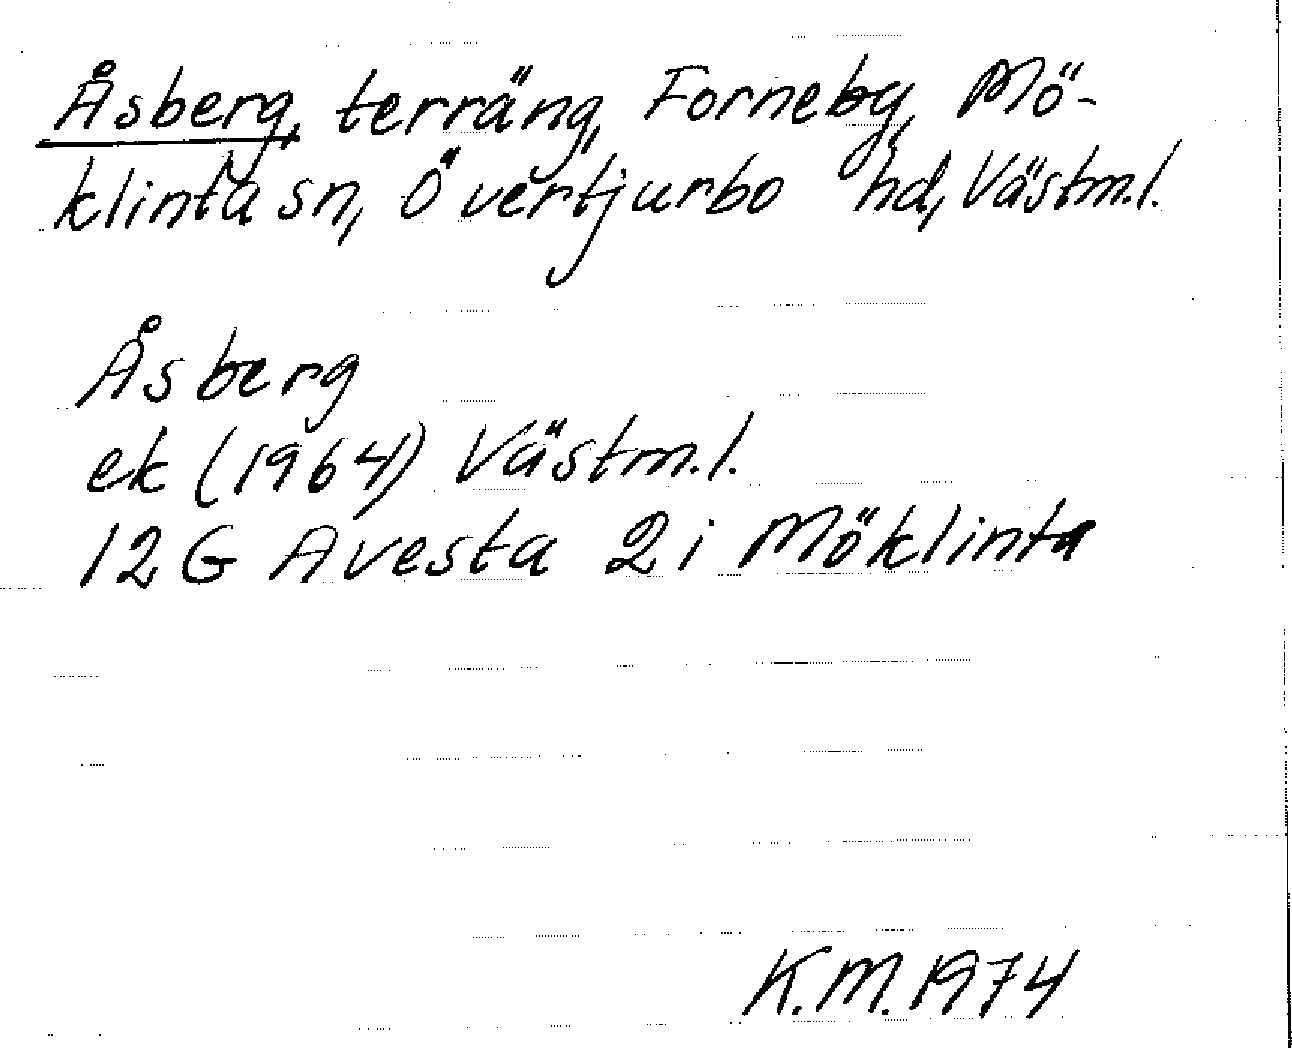 Åsberg, terräng, Forneby, Mö-
klinta sn, Övertjurbo hd, Västm.l.
Åsberg
ek (1964) Västm.l.
12G Avesta 2i Möklinta
K.M. 1974